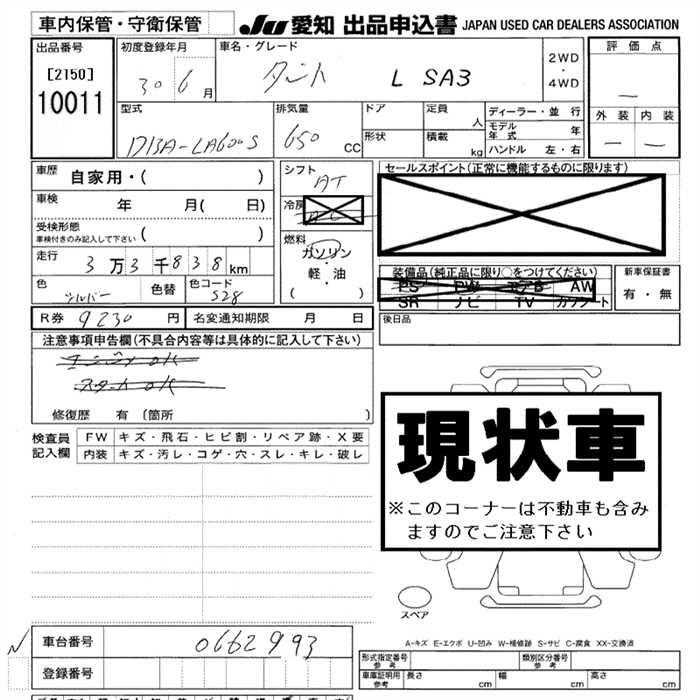 車内保管・守衛保管 JU 愛知 出品申込書 JAPAN USED CAR DEALERS ASSOCIATION
出品番号
[2150]
10011
初度登録年月
30 6 月
車名・グレード
タント L SA3
2WD
・
4WD
評価点
—
外装 内装
— —
型式
DBA-LA600S
排気量
650 CC
ドア
形状
定員 人
積載 kg
ディーラー・並行
モデル年式 年
ハンドル 左・右
車歴
自家用・( )
車検
年 月( 日)
受検形態
車検付きのみ記入して下さい ( )
走行
3万3千838km
色
シルバー
色替
色コード
S28
シフト
AT
冷房
AC
燃料
ガソリン
・
軽・油
( )
セールスポイント(正常に機能するものに限ります)
装備品(純正品に限り○をつけてください)
PS PW エアB AW
SR ナビ TV カワシート
新車保証書
有・無
R券 9230 円
名変通知期限 月 日
後日品
注意事項申告欄(不具合内容等は具体的に記入して下さい)
エンジンOK
スタートOK
修復歴 有 〔箇所 〕
検査員記入欄
FW キズ・飛石・ヒビ割・リペア跡・X要
内装 キズ・汚レ・コゲ・穴・スレ・キレ・破レ
現状車
※このコーナーは不動車も含み
ますのでご注意下さい
スペア
A-キズ E-エクボ U-凹み W-補修跡 S-サビ C-腐食 XX-交換済
車台番号
0662993
登録番号
形式指定番号
参考
類別区分番号
参考
車庫証明用
参考
長さ cm
幅 cm
高さ cm